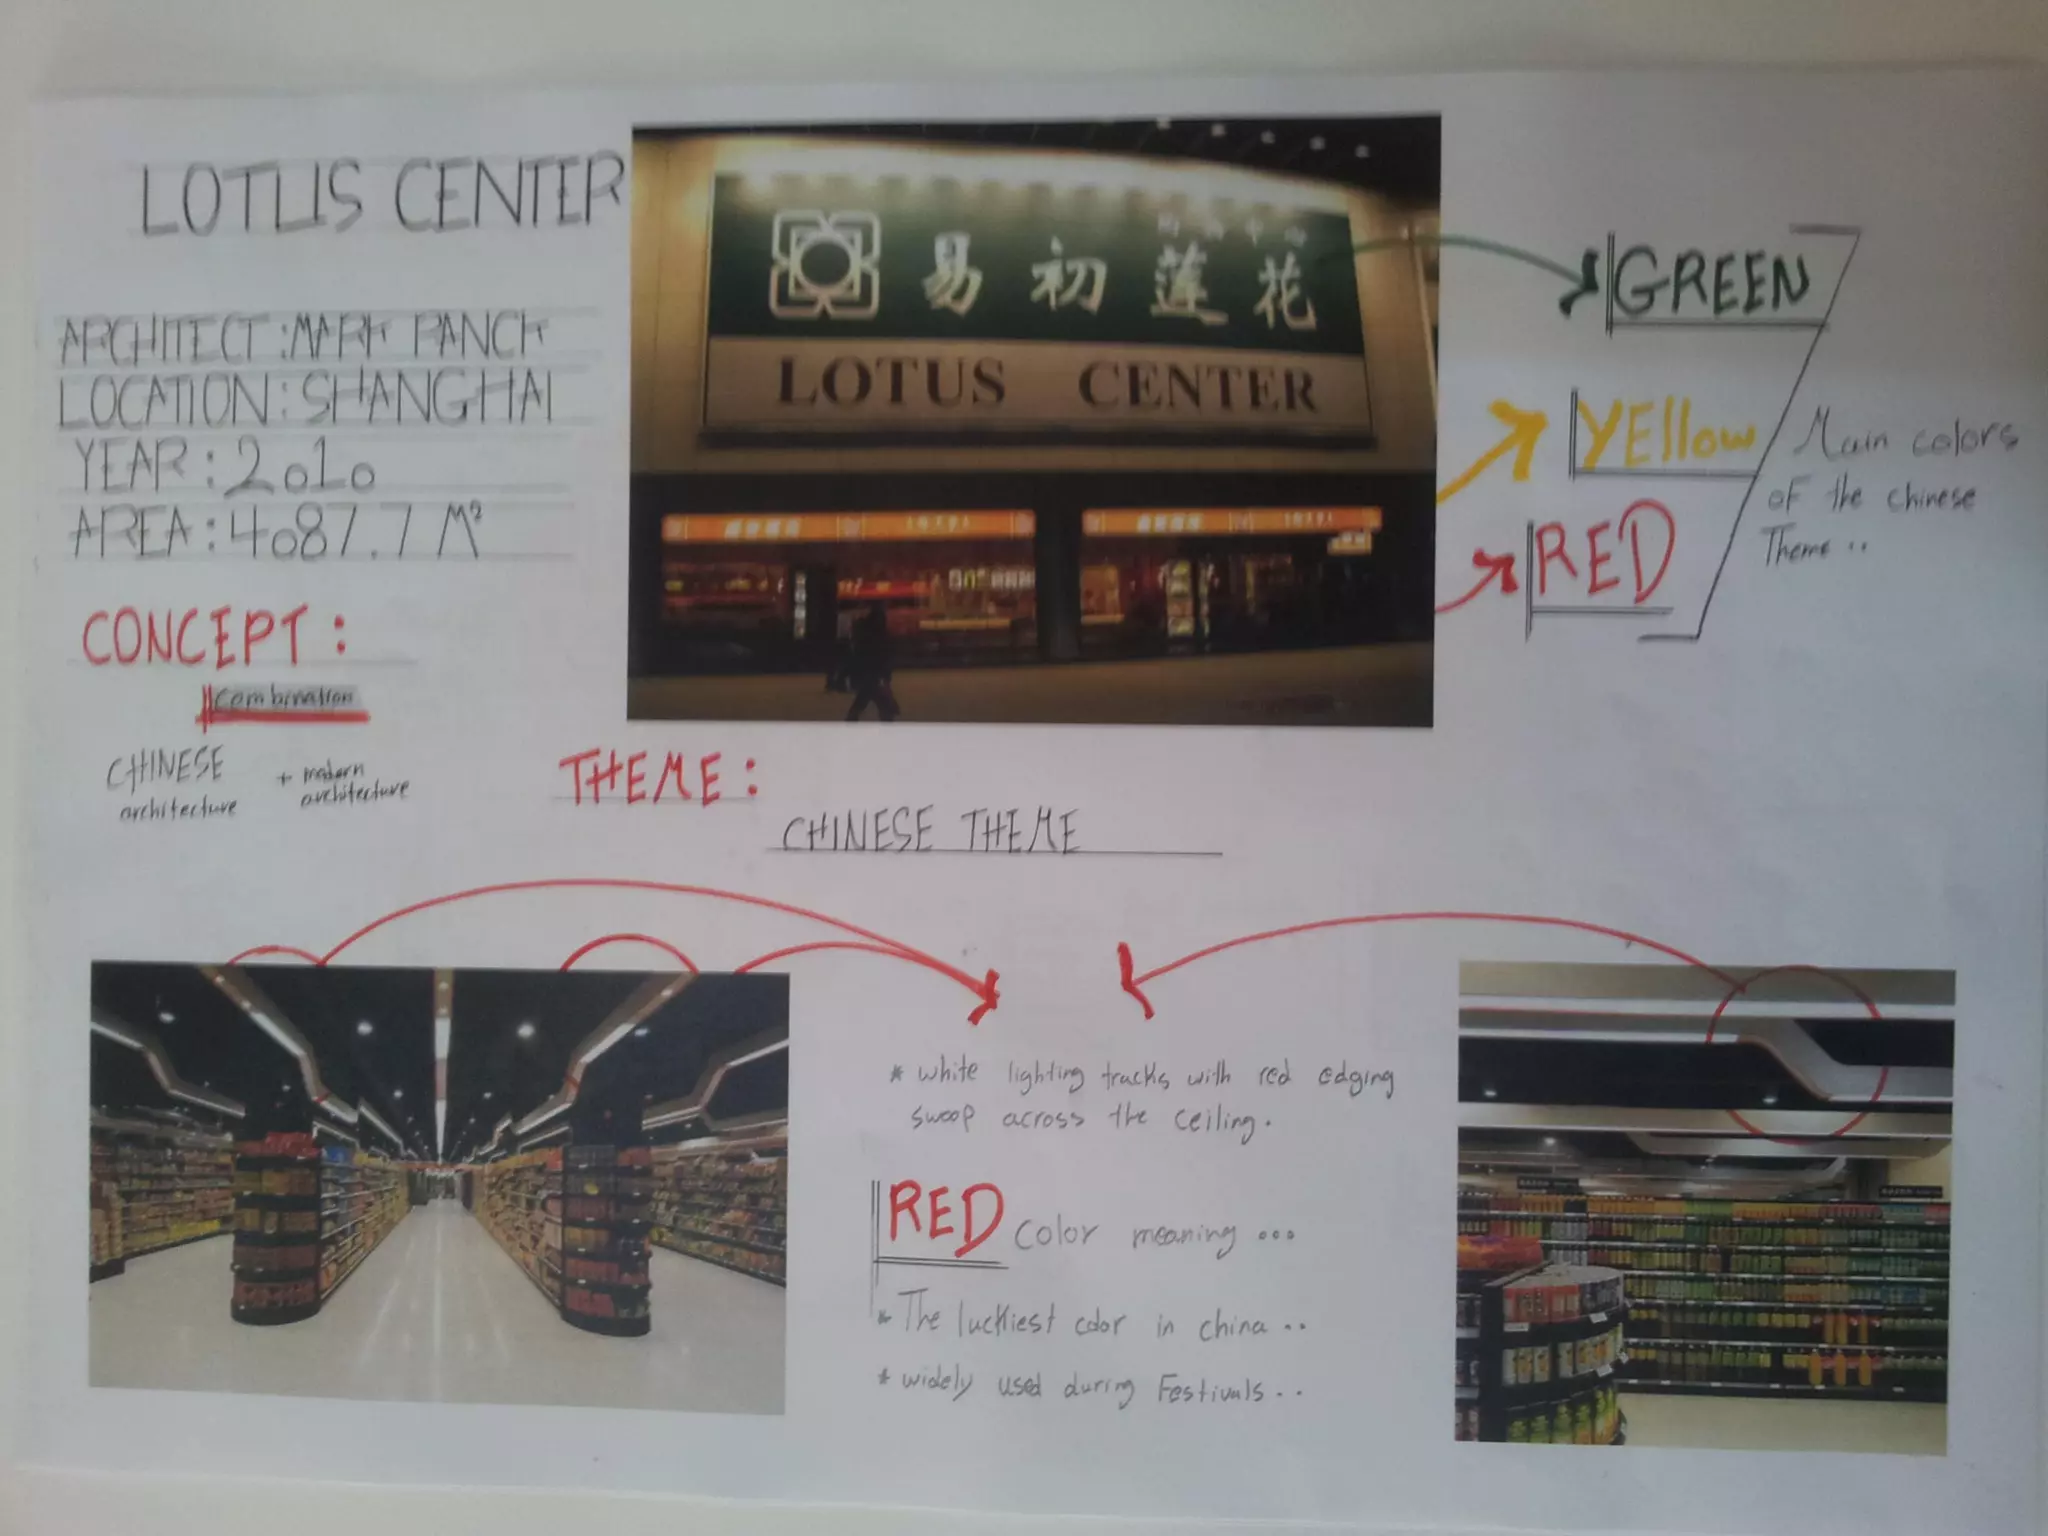 LOTUS CENTER
ARCHITECT : MARK PANCK
LOCATION : SHANGHAI
YEAR : 2010
AREA : 4087.7 M²
CONCEPT :
combination
CHINESE architecture + modern architecture
易初莲花
LOTUS CENTER
GREEN
YEllow
RED
Main colors
of the chinese
Theme ..
THEME :
CHINESE THEME
* white lighting tracks with red edging
swoop across the ceiling.
RED color meaning ...
* The luckiest color in china ..
* widely used during Festivals ..